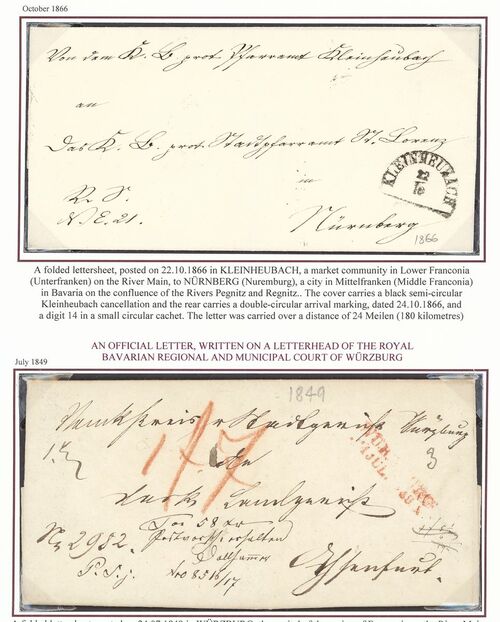 October 1866
Von dem K. B. prot. Pfarramt Kleinheubach
an
Das K. B. prot. Stadtpfarramt St. Lorenz
in
R. S.
N. E. 21.
Nürnberg
KLEINHEUBACH
22
10
1866
A folded lettersheet, posted on 22.10.1866 in KLEINHEUBACH, a market community in Lower Franconia
(Unterfranken) on the River Main, to NÜRNBERG (Nuremburg), a city in Mittelfranken (Middle Franconia)
in Bavaria on the confluence of the Rivers Pegnitz and Regnitz.. The cover carries a black semi-circular
Kleinheubach cancellation and the rear carries a double-circular arrival marking, dated 24.10.1866, and
a digit 14 in a small circular cachet. The letter was carried over a distance of 24 Meilen (180 kilometres)
AN OFFICIAL LETTER, WRITTEN ON A LETTERHEAD OF THE ROYAL
BAVARIAN REGIONAL AND MUNICIPAL COURT OF WÜRZBURG
July 1849
1849
Stadtgericht Würzburg
3
Landgericht
No 2952.
Tax 58 xr
Postvorschuss erhalten
Ochsenfurt.